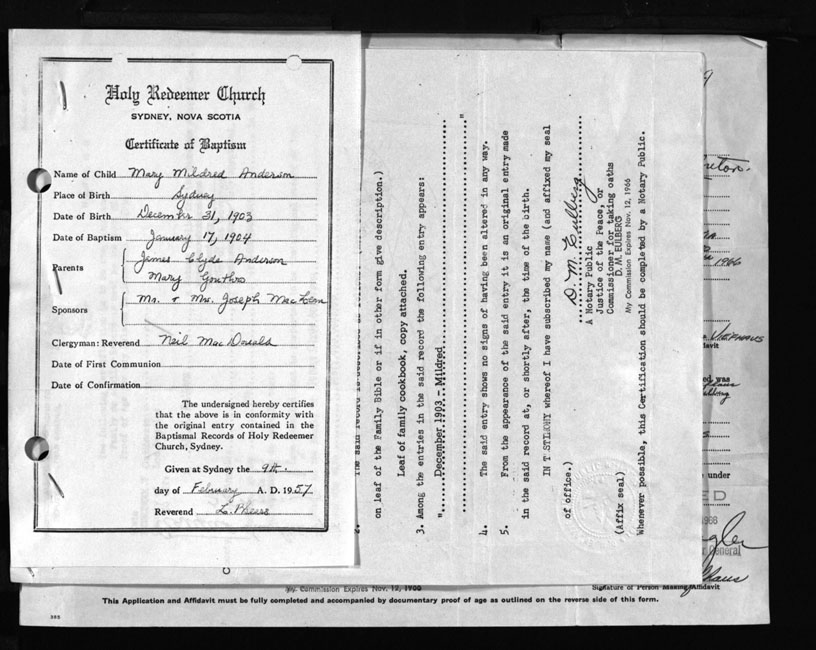 Holy Redeemer Church
SYDNEY, NOVA SCOTIA
Certificate of Baptism
Name of Child Mary Mildred Anderson
Place of Birth Sydney
Date of Birth December 31, 1903
Date of Baptism January 17, 1904
Parents James Clyde Anderson
Mary Gouthro
Sponsors Mr. & Mrs. Joseph Mac
Clergyman: Reverend Neil Mac Donald
Date of First Communion
Date of Confirmation
The undersigned hereby certifies
that the above is in conformity with
the original entry contained in the
Baptismal Records of Holy Redeemer
Church, Sydney.
Given at Sydney the 9th.
day of February A. D. 1957
Reverend L.
2.
on leaf of the Family Bible or if in other form give description.)
Leaf of family cookbook, copy attached.
3. Among the entries in the said record the following entry appears:
"......December 1903 - Mildred......
......"
4. The said entry shows no signs of having been altered in any way.
5. From the appearance of the said entry it is an original entry made
in the said record at, or shortly after, the time of the birth.
IN T STLMONY whereof I have subscribed my name (and affixed my seal
of office.)
D. M. Eulberg
A Notary Public
Justice of the Peace, or
Commissioner for taking oaths
D. M. EULBERG
My Commission Expires Nov. 12, 1966
(Affix seal)
Whenever possible, this Certification should be completed by a Notary Public.
9
1966
davit
ed was
under
ED
1966
General
My Commission Expires Nov. 12, 1966
Signature of Person Making Affidavit
This Application and Affidavit must be fully completed and accompanied by documentary proof of age as outlined on the reverse side of this form.
385